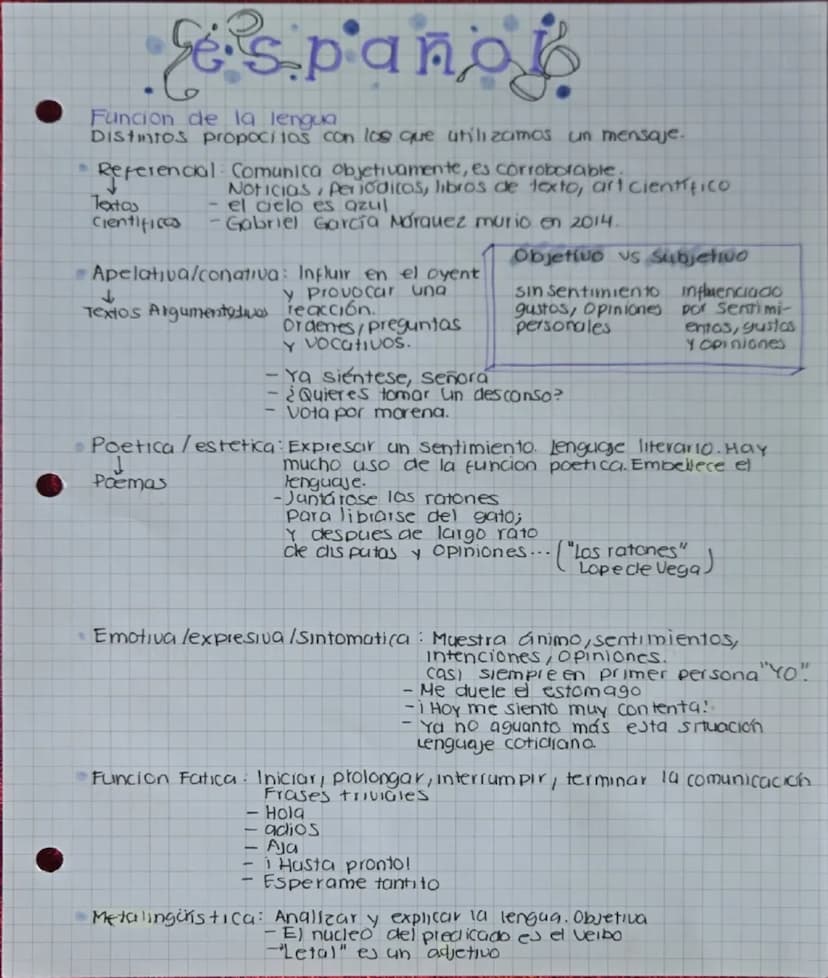 español
Funcion de la lengua
Distintos propocitos con los que utilizamos un mensaje.
Referencial: Comunica objetivamente, es corroborable.
Noticias, periódicos, libros de texto, art científico
↓
Textos
cientificos
- el cielo es azul
- Gabriel García Márquez murio en 2014.
Apelativa/conativa: Influir en el oyent
y provocar una
reacción.
Ordenes, preguntas
y vocativos.
↓
Textos Argumentativos
Objetivo vs subjetivo
sin sentimiento
gustos, opiniones
personales
influenciado
por sentimi-
entos, gustos
y opiniones
- Ya siéntese, señora
- ¿Quieres tomar un descanso?
- Vota por morena.
Poetica/estetica: Expresar un sentimiento. lenguaje literario. Hay
mucho uso de la funcion poetica. Embellece el
lenguaje.
↓
Poemas
- Juntárose los ratones
para librarse del gato;
y despues de largo rato
de disputas y opiniones... ("Los ratones"
Lope de Vega)
Emotiva/expresiva/sintomatica: Muestra ánimo, sentimientos,
intenciones, opiniones.
casi siempre en primer persona "YO".
- Me duele el estomago
- ¡Hoy me siento muy contenta!
- Ya no aguanto más esta situación
Lenguaje cotidiano.
Funcion Fatica: Iniciar, prolongar, interrumpir, terminar la comunicación
Frases triviales
- Hola
- adios
- Aja
- ¡Hasta pronto!
- Esperame tantito
Metalingüistica: Analizar y explicar la lengua. Objetiva
- El nucleo del predicado es el verbo
- "Letal" es un adjetivo